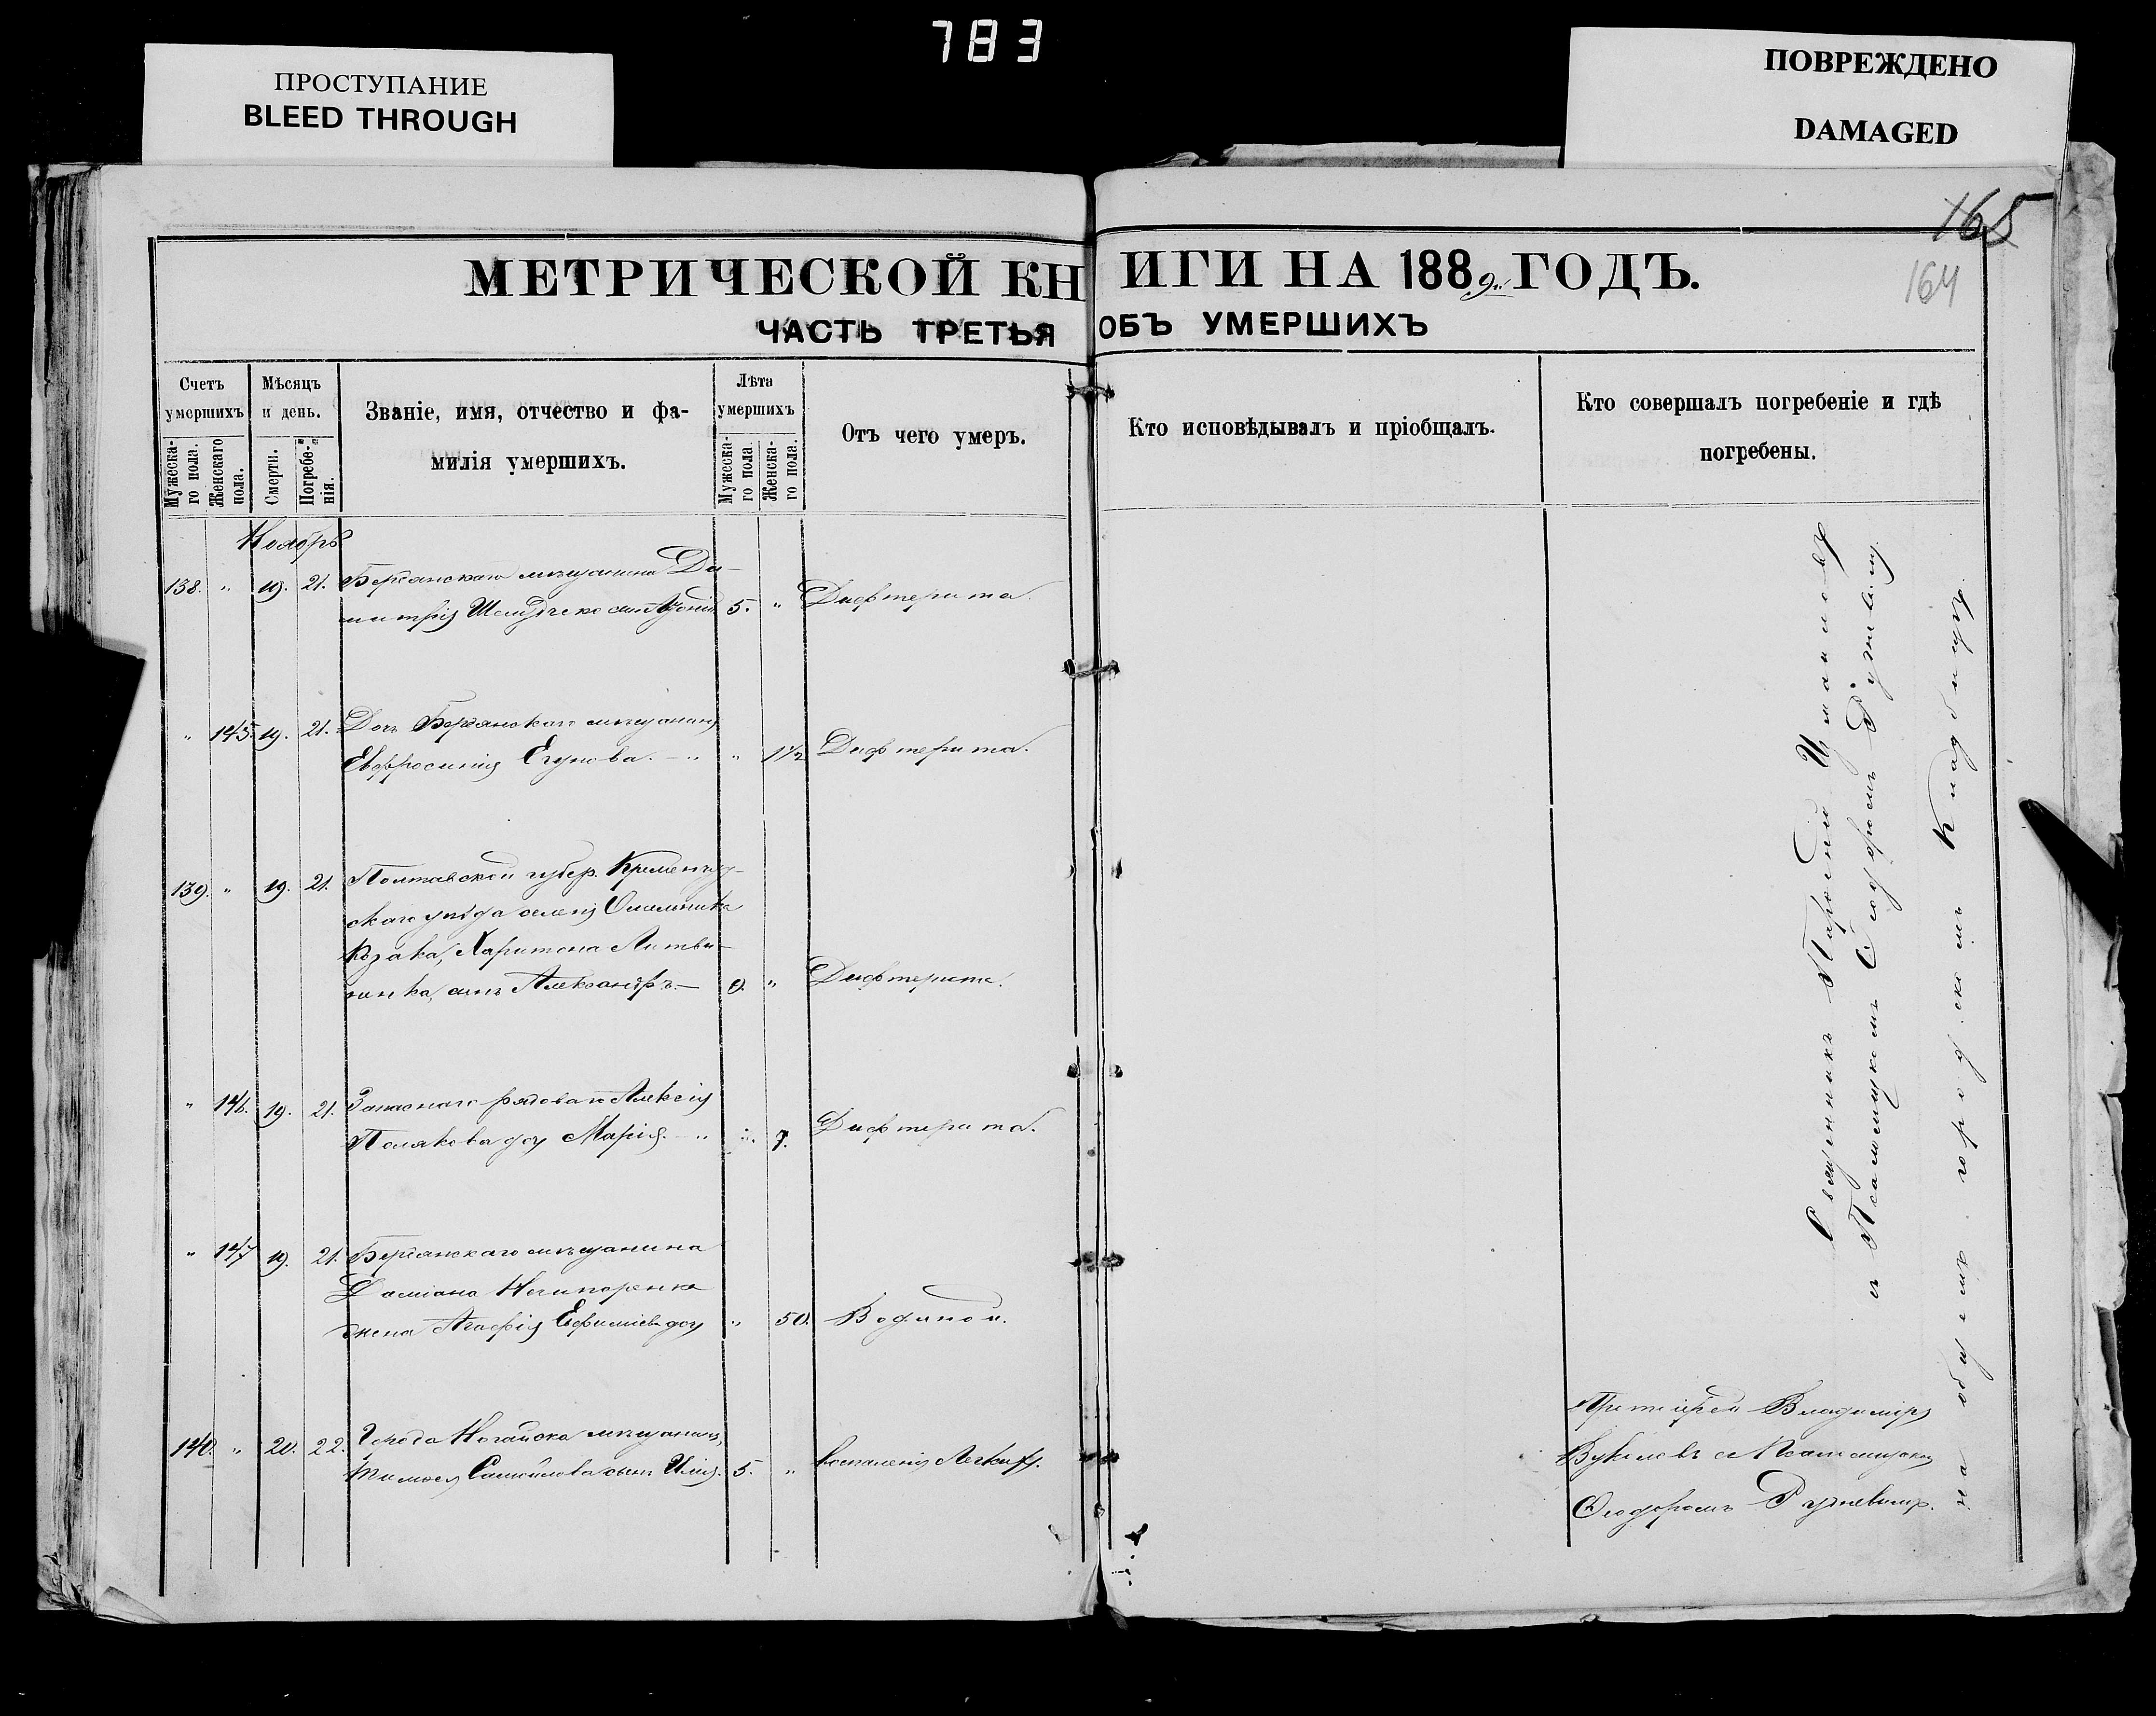 783
ПРОСТУПАНИЕ
BLEED THROUGH
ПОВРЕЖДЕНО
DAMAGED
165
164
МЕТРИЧЕСКОЙ КНИГИ НА 1889 ГОДЪ.
ЧАСТЬ ТРЕТЬЯ ОБЪ УМЕРШИХЪ
Счетъ умершихъ
Мужеска-го пола.
Женскаго пола.
Мѣсяцъ и день.
Смерти.
Погребе-нія.
Званіе, имя, отчество и фа-
милія умершихъ.
Лѣта умершихъ
Мужеска-го пола.
Женска-го пола.
Отъ чего умеръ.
Кто исповѣдывалъ и пріобщалъ.
Кто совершалъ погребеніе и гдѣ
погребены.
Ноябрь
138. " 19. 21. Бердянскаго мѣщанина Ди-
митрія сынъ 5. " Дифтерита.
" 145. 19. 21. Дочь Бердянскаго мѣщанина
Евфросинія Егунова. " 1 1/2 Дифтерита.
139. " 19. 21. Полтавской губер. Кременчуг-
скаго уѣзда селенія Омельника
козака, Харитона Литви-
ненка, сынъ Александръ. " Дифтерита.
" 146. 19. 21. Запаснаго рядоваго Алексія
Полякова дочь Марія. " 7. Дифтерита.
" 147 19. 21. Бердянскаго мѣщанина
Даміана Нечипоренка
жена Агафія " 50. Водяной.
140. " 20. 22. Города Ногайска мѣщанина,
Самойлова сынъ Илія. 5. " Воспаленія Легкихъ.
Священникъ
съ Псаломщикомъ Ѳеодоромъ
на общемъ городскомъ кладбищѣ.
Протоіерей Владиміръ
съ Псаломщикомъ
Ѳеодоромъ